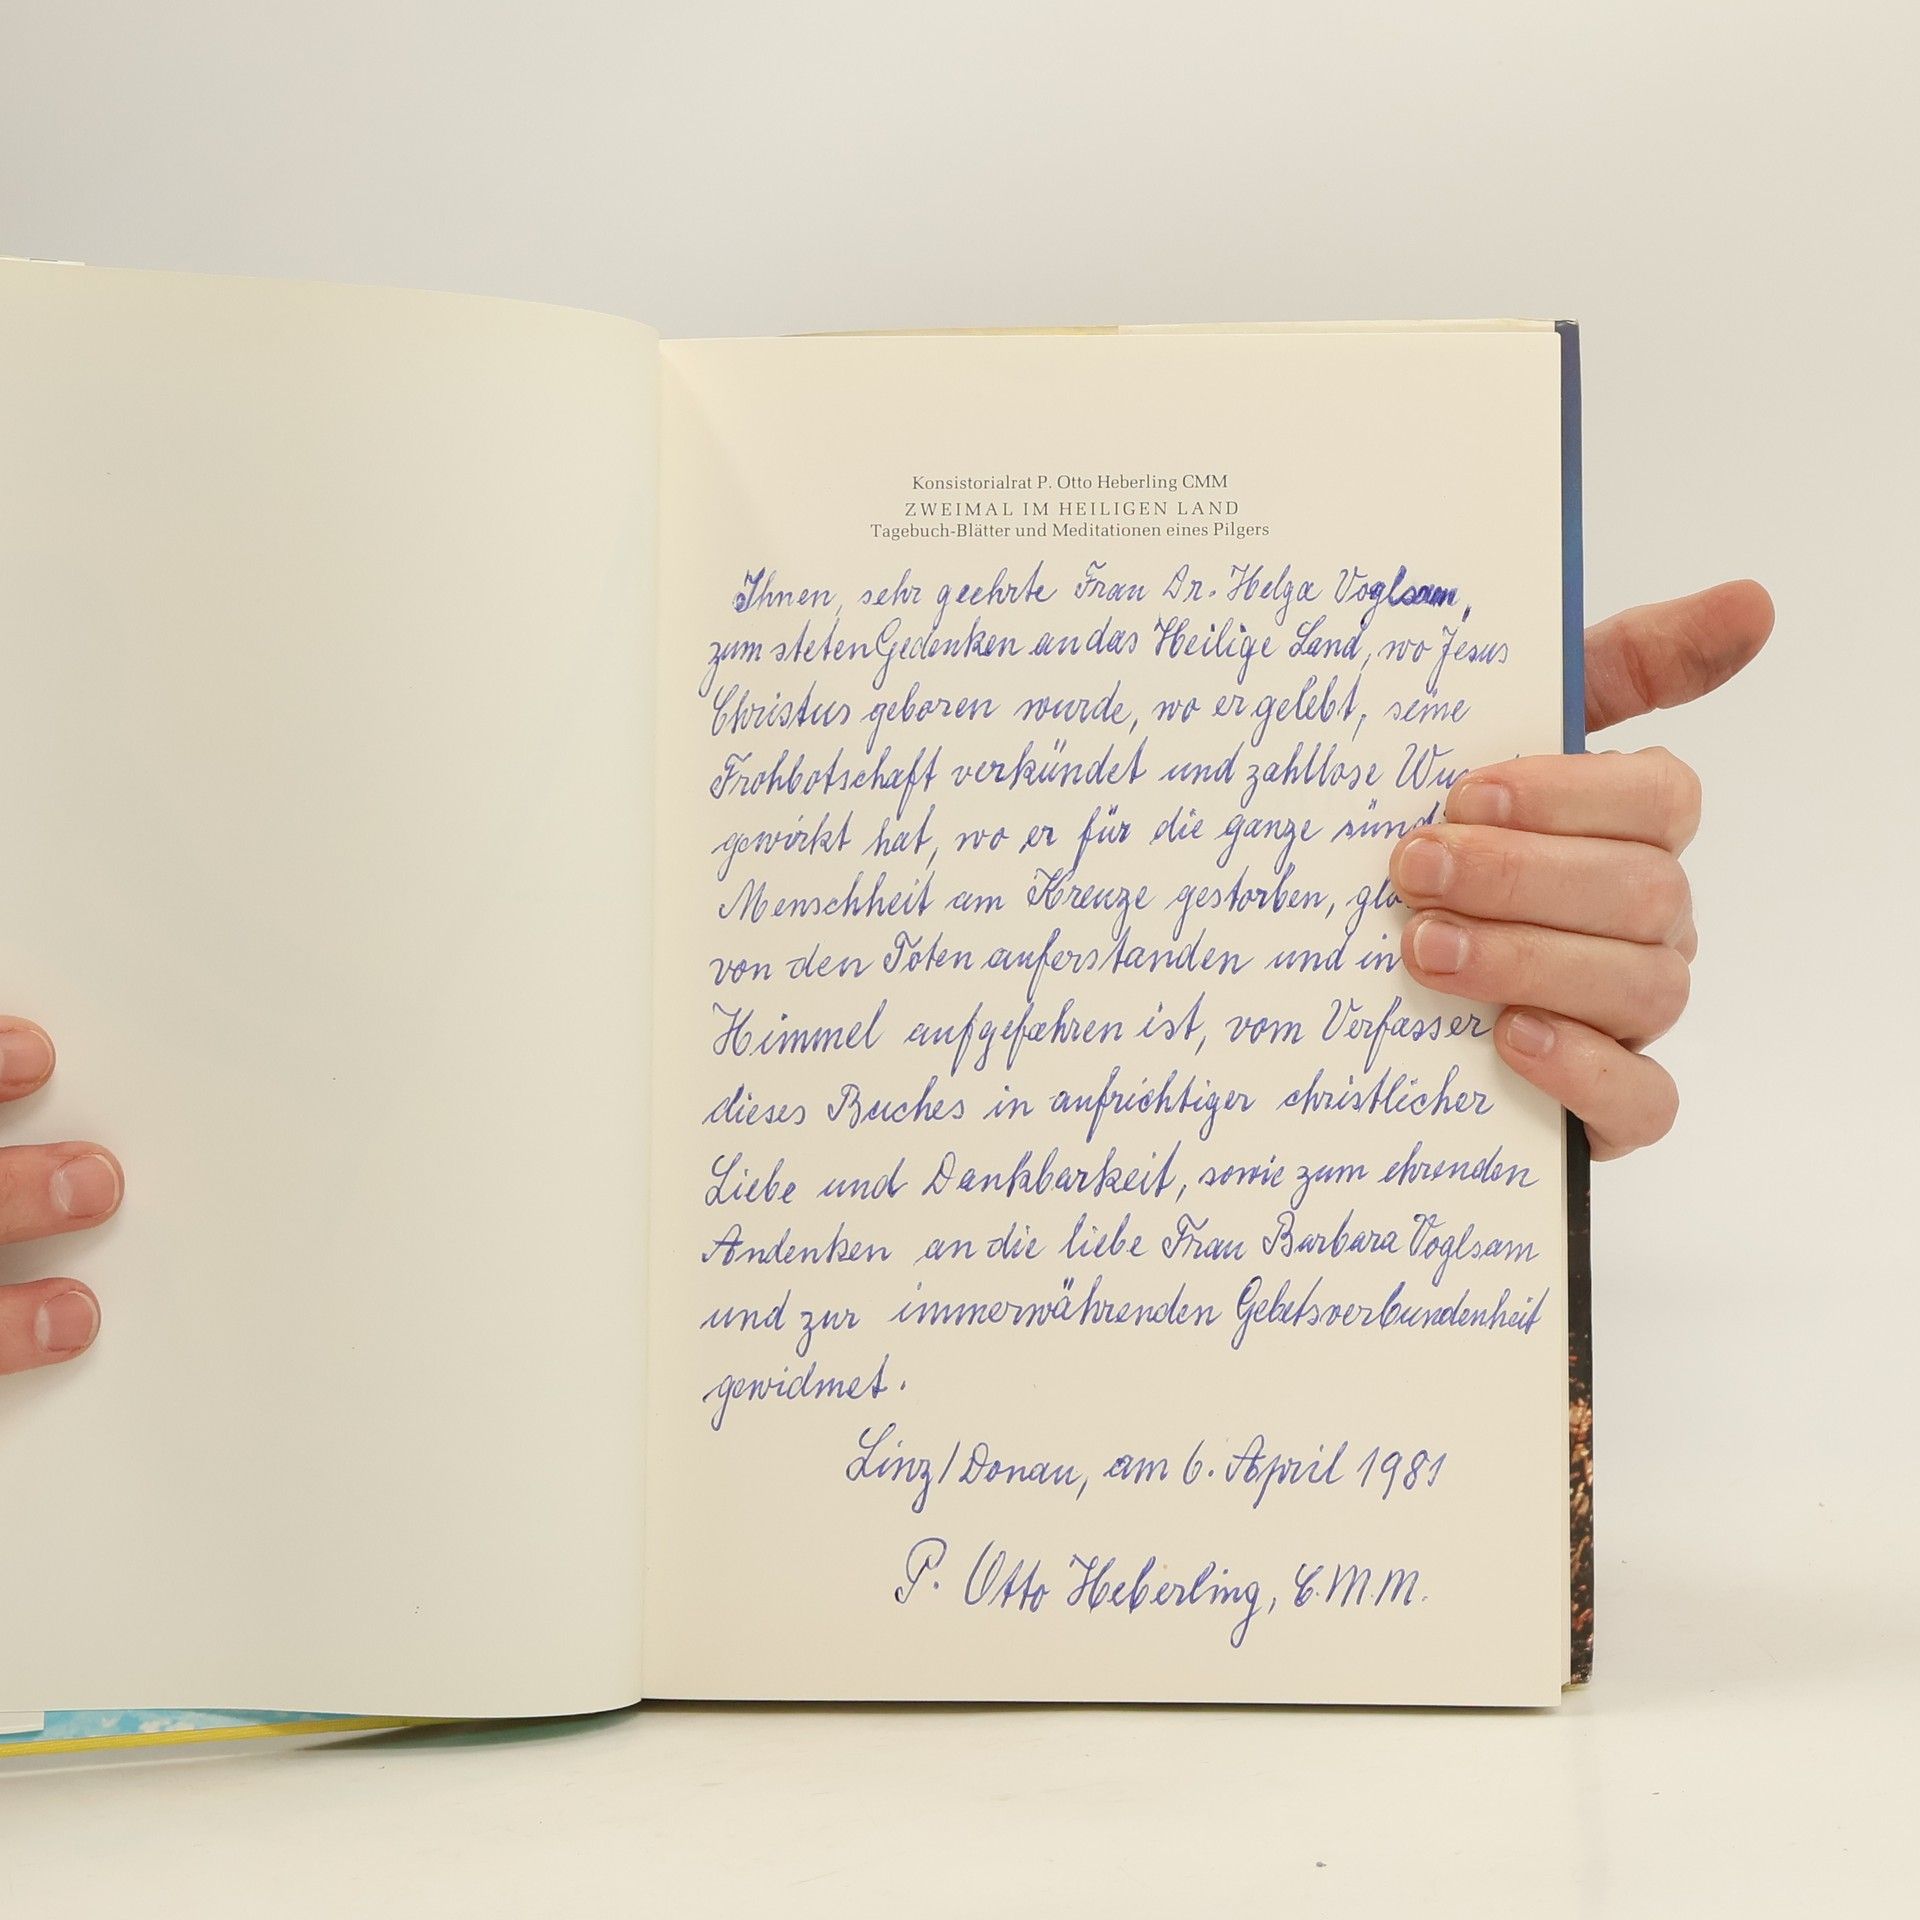 Konsistorialrat P. Otto Heberling CMM
ZWEIMAL IM HEILIGEN LAND
Tagebuch-Blätter und Meditationen eines Pilgers
Ihnen, sehr geehrte Frau Dr. Helga Voglsam,
zum steten Gedenken an das Heilige Land, wo Jesus
Christus geboren wurde, wo er gelebt, seine
Frohbotschaft verkündet und zahllose
gewirkt hat, wo er für die ganze
Menschheit am Kreuze gestorben,
von den Toten auferstanden und in
Himmel aufgefahren ist, vom Verfasser
dieses Buches in aufrichtiger christlicher
Liebe und Dankbarkeit, sowie zum ehrenden
Andenken an die liebe Frau Barbara Voglsam
und zur immerwährenden Gebetsverbundenheit
gewidmet.
Linz/Donau, am 6. April 1981
P. Otto Heberling, C.M.M.